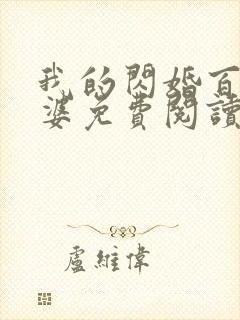 我的閃婚百
婆免費閱讀
盧維偉